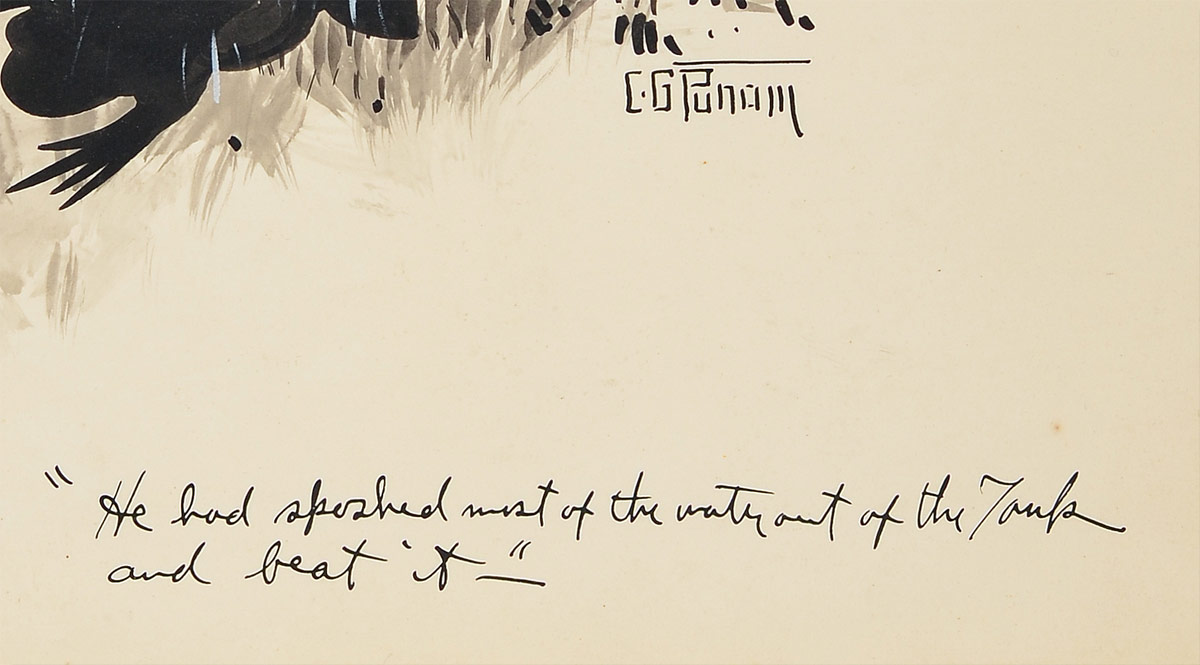 C·G Punam
" He had sposhed most of the water out of the Tank
and beat it — "